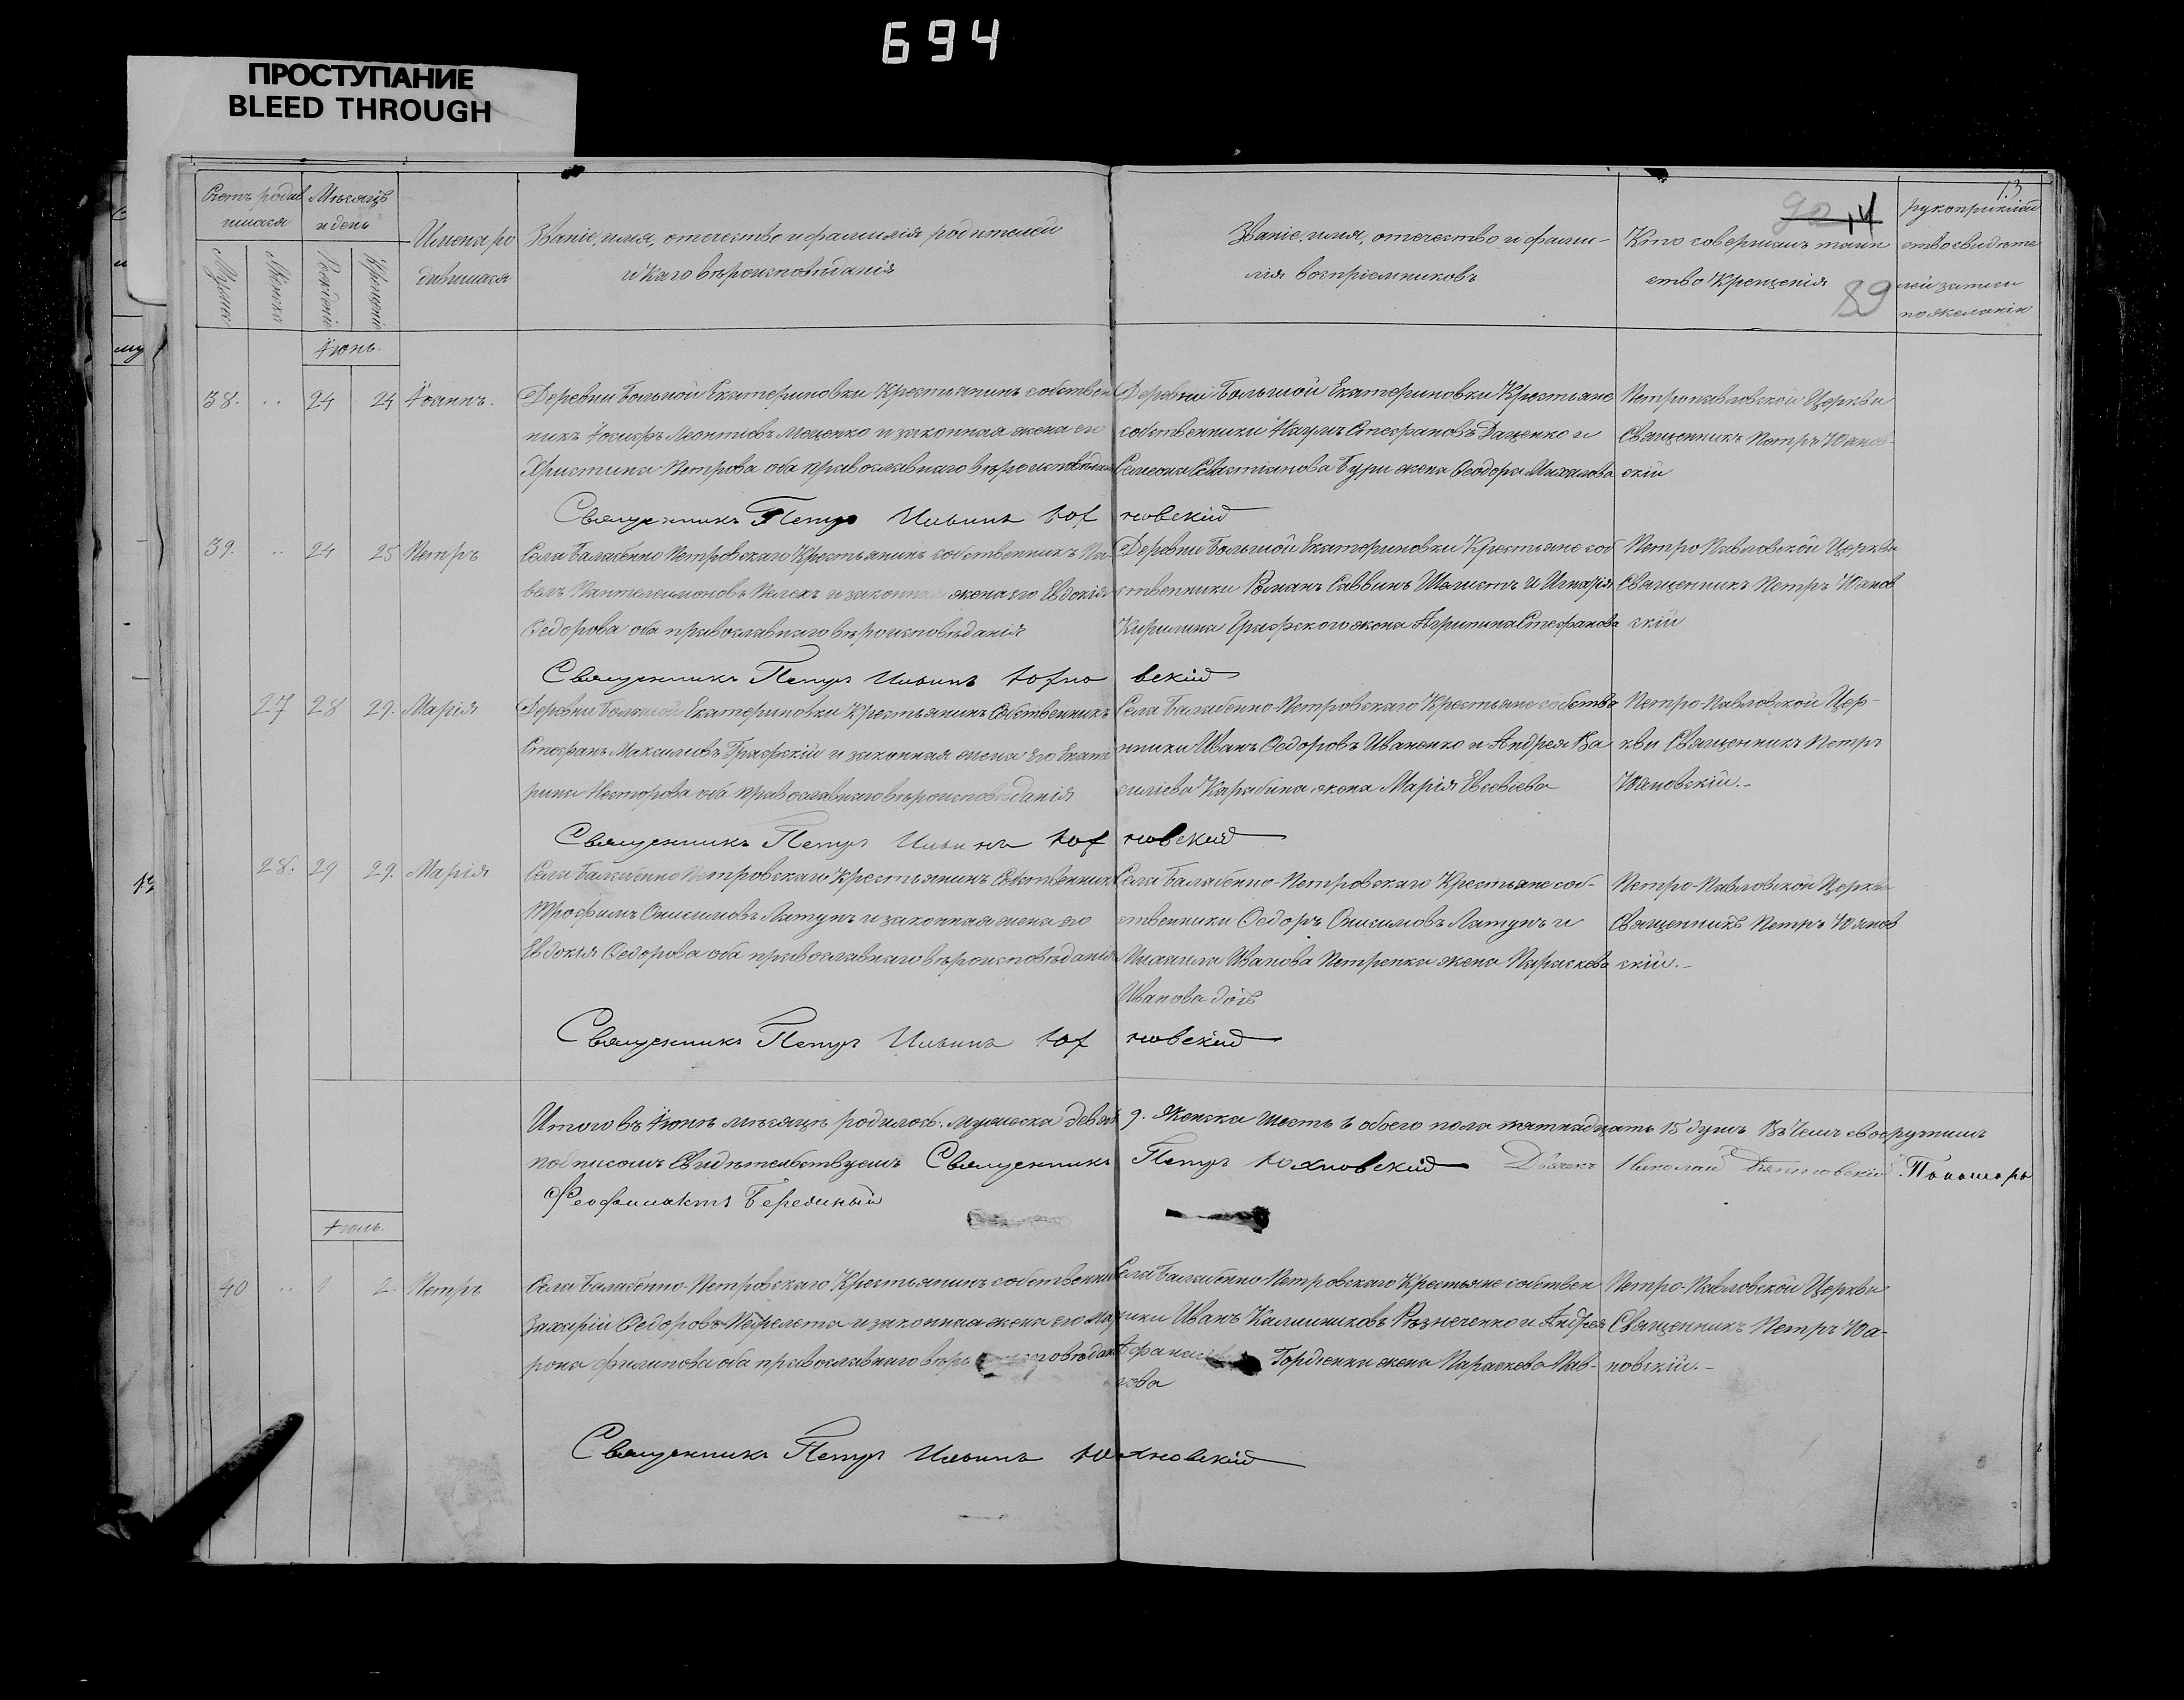 694
ПРОСТУПАНИЕ
BLEED THROUGH
13
90 14
89
Счетъ родив
шихся
Мѣсяцъ
и день
Имена ро
дившихся
Званіе, имя, отечество и фамилія родителей
и какого вѣроисповѣданія
Званіе, имя, отечество и фами-
лія воспріемниковъ
Кто совершалъ таин
ство крещенія
рукоприклад
ство свидѣте
лей записи
по желанію
Мужеск
Женска
Рожденіе
Крещеніе
Іюнь.
38. .. 24 24 Іоаннъ.
Деревни Большой Екатериновки Крестьянинъ собствен
никъ Іосифъ Леонтіевъ Моценко и законная жена его
Христина Петрова оба православнаго вѣроисповѣдан
Деревни Большой Екатериновки Крестьяне
собственники Наумъ Стефановъ Даценко и
Семеона Севастіанова Бури жена Феодора Михаилова
Петропавловской Церкви
Священникъ Петръ Юханов-
скій
Священникъ Петръ Ильинъ Юхновскій
39. .. 24 25 Петръ
Села Балабенно Петровскаго Крестьянинъ собственникъ Па
велъ Пантелеимоновъ Пелехъ и законная жена его Евдокія
Федорова оба православнаго вѣроисповѣданія
Деревни Большой Екатериновки Крестьяне соб
ственники Романъ Саввинъ Шелестъ и Игнатія
Кирилина Графского жена Агрипина Стефанова
Петро Павловской Церкви
Священникъ Петръ Юханов
скій
Священникъ Петръ Ильинъ Юхновскій
27 28 29. Марія
Деревни Большой Екатериновки Крестьянинъ Собственникъ
Стефанъ Максимовъ Графскій и законная жена его Екате
рина Несторова оба православнаго вѣроисповѣданія
Села Балабенно-Петровскаго Крестьяне собстве
нники Иванъ Федоровъ Иваненко и Андрея Ва
силіева Карабина жена Марія Евсевіева
Петро-Павловской Цер-
кви Священникъ Петръ
Юхновскій.-
Священникъ Петръ Ильинъ Юхновскій
28. 29 29. Марія
Села Балабенно Петровскаго Крестьянинъ Собственникъ
Трофимъ Онисимовъ Латунъ и законная жена его
Евдокія Федорова оба православнаго вѣроисповѣданія
Села Балабенно-Петровскаго Крестьяне соб-
ственники Федоръ Онисимовъ Латунъ и
Михаила Иванова Петренка жена Параскева
Иванова дочь
Петро-Павловской Церкви
Священникъ Петръ Юханов
скій.-
Священникъ Петръ Ильинъ Юхновскій
Итого въ Іюнѣ мѣсяцѣ родилось: мужеска девять 9. Женска шесть 6 обоего пола пятнадцать 15 душъ Въ чемъ своеручнымъ
подписомъ Свидѣтельствуемъ Священникъ Петръ Юхновскій Дьячекъ Николай Пономарь
Феофилактъ Бережный
Іюль.
40 .. 1 2. Петръ
Села Балабенно-Петровскаго Крестьянинъ собственни
Захарій Федоровъ Перелета и законная жена его Мат
рона Филипова оба православнаго вѣроисповѣдан
Села Балабенно-Петровскаго Крестьяне собствен
ники Иванъ Калиниковъ Андрея
Гордіенка жена Параскева Пав-
лова
Петро-Павловской Церкви
Священникъ Петръ Юха-
новскій.-
Священникъ Петръ Ильинъ Юхновскій